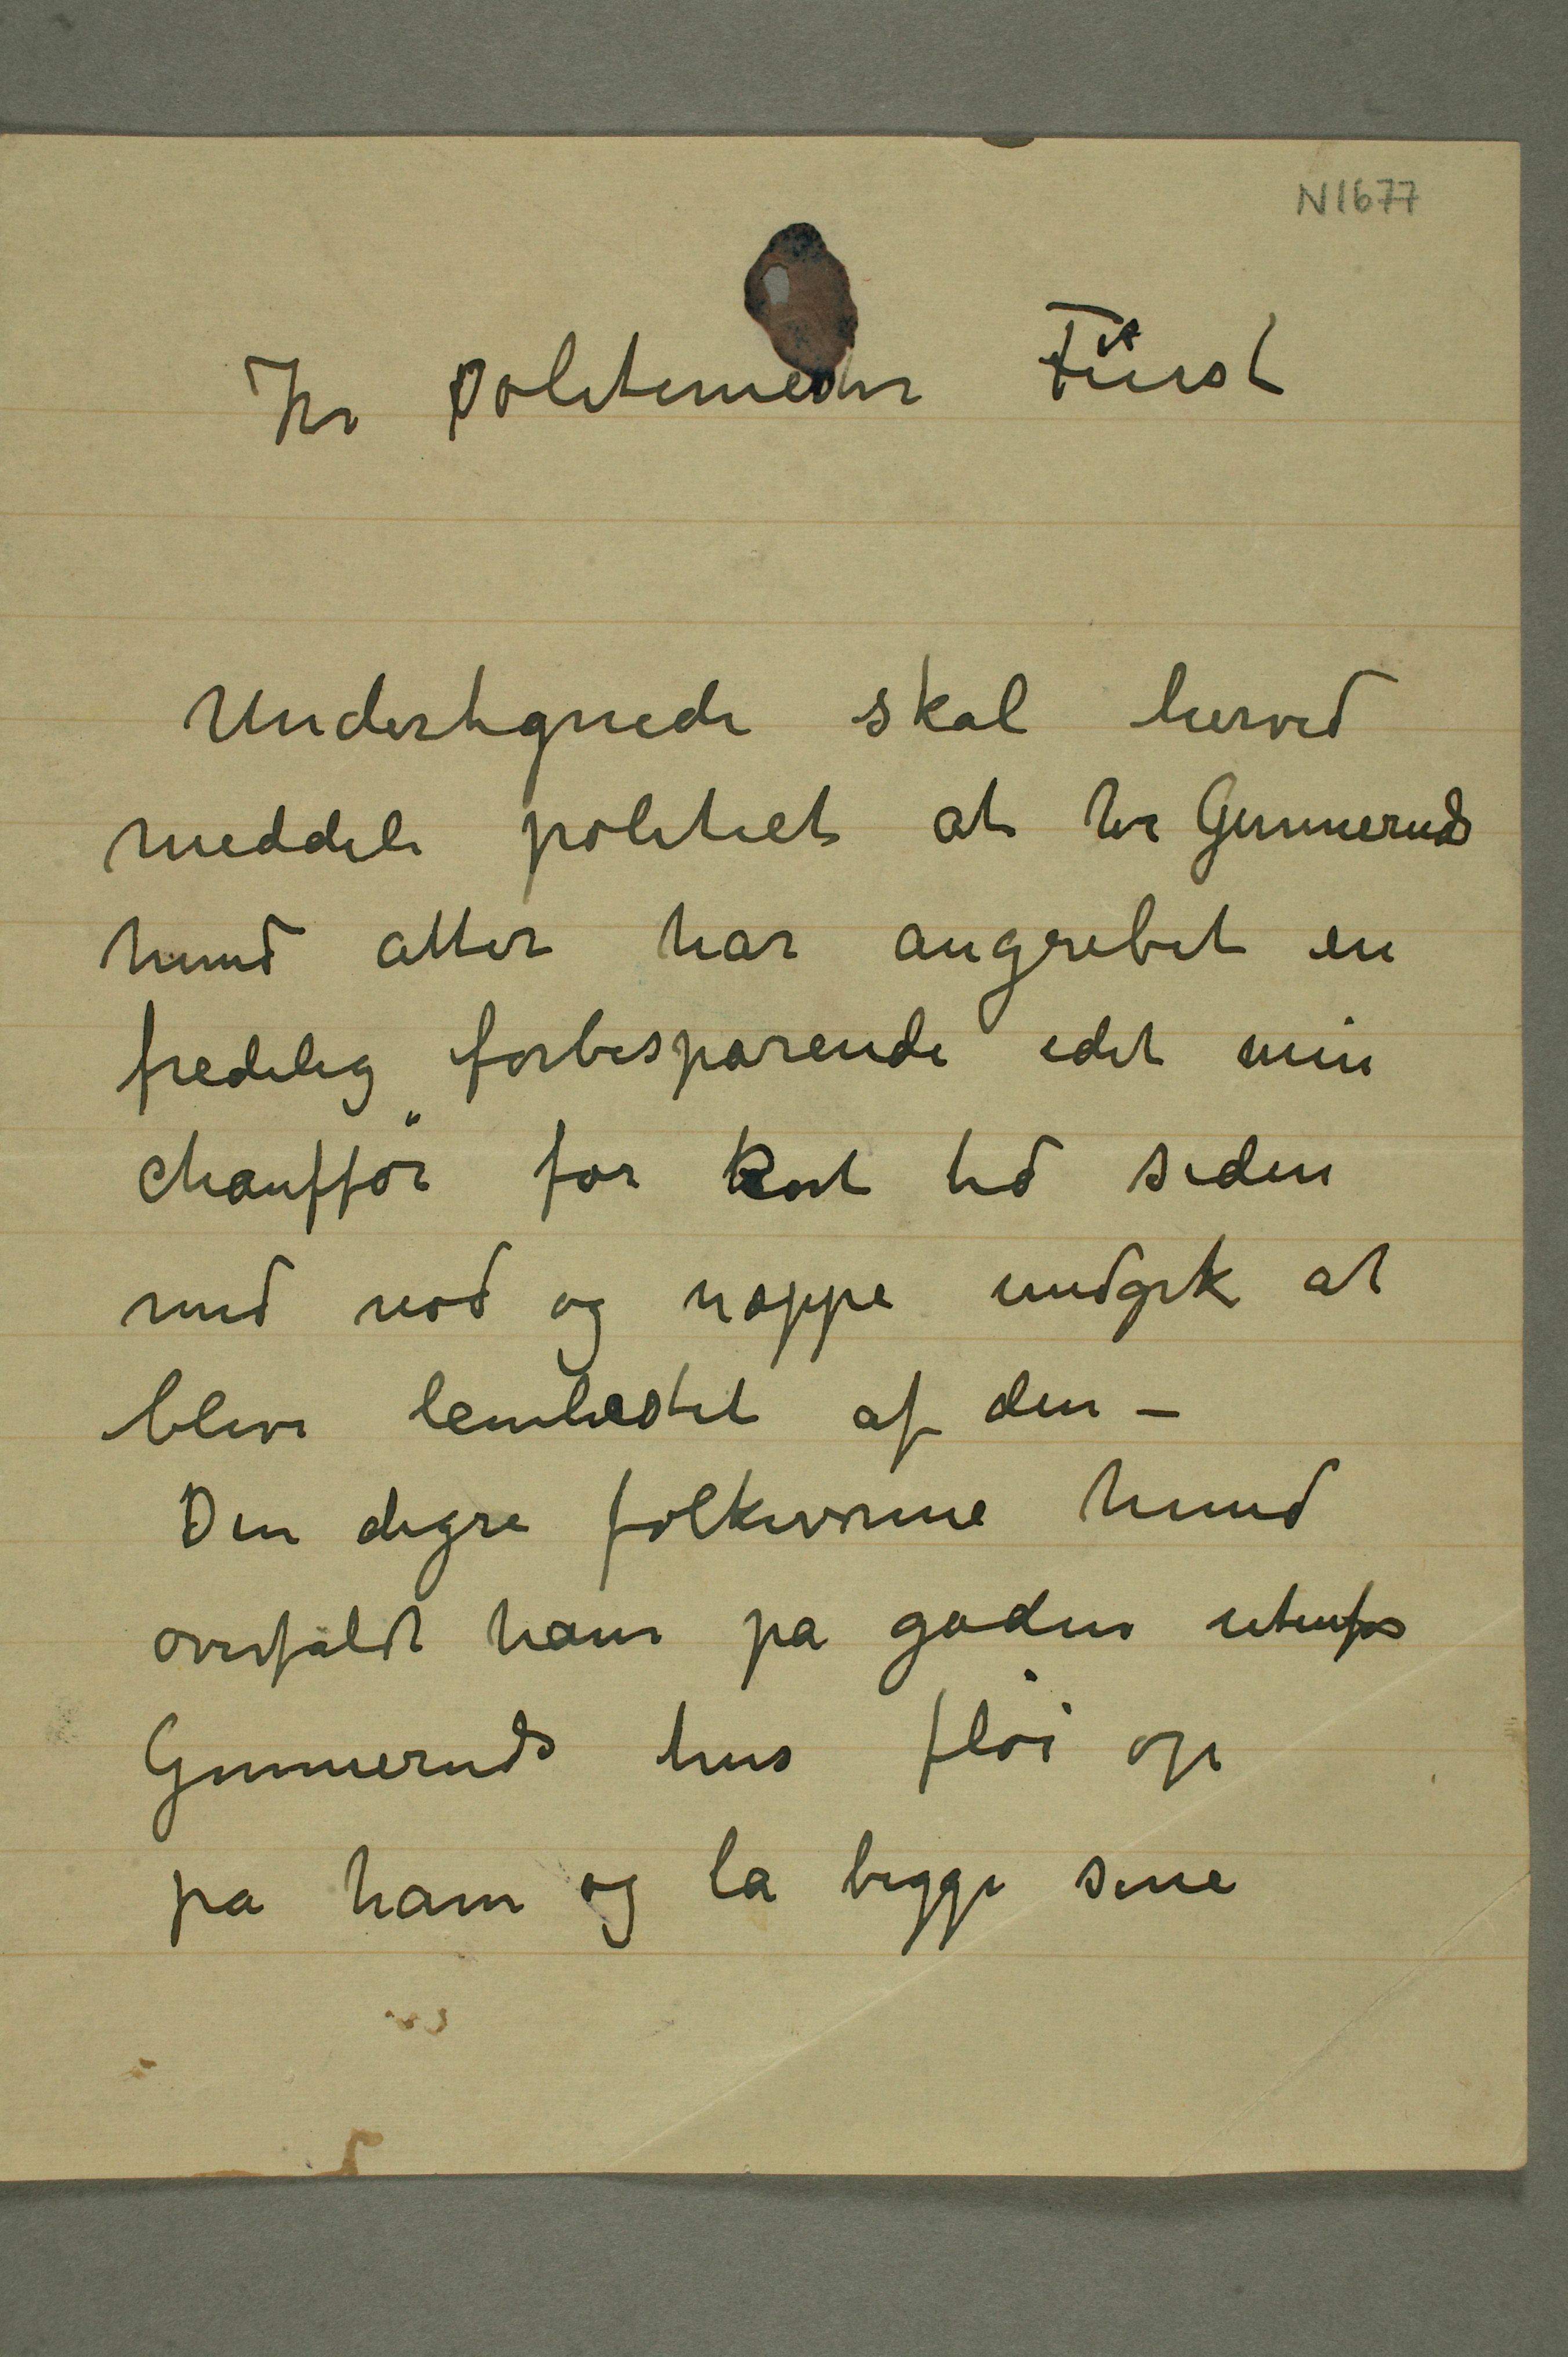 N1677
Hr Politimester Fürst
Undertegnede skal herved
meddele politiet at hr Gunneruds
hund atter har angrebet en
fredelig forbipasarende idet min
chaufför for kort tid siden
med nød og næppe undgik at
blive lemlæstet af den –
Den digre folkevonne hund
overfaldt ham pa gaden utenfor
Gunneruds hus flöi op
pa ham og la begge sine